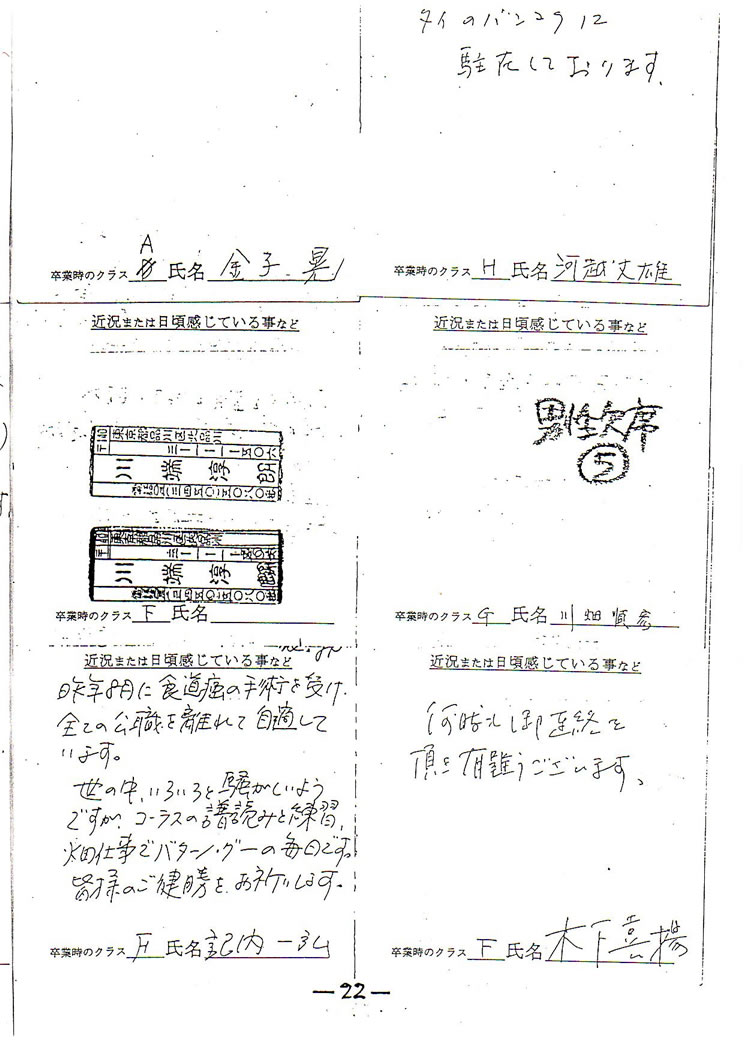 タイのバンコクに
駐在しております。
卒業時のクラス A 氏名 金子 晃
卒業時のクラス H 氏名 河越丈雄
近況または日頃感じている事など
近況または日頃感じている事など
男性欠席
⑤
川端淳朗
川端淳朗
卒業時のクラス F 氏名
卒業時のクラス G 氏名 川畑順彦
近況または日頃感じている事など
昨年8月に食道癌の手術を受け、
全ての公職を離れて自適して
います。
世の中、いろいろと騒がしいよう
ですが、コーラスの譜読みと練習、
畑仕事でバタン・グーの毎日です。
皆様のご健勝をお祈りします。
卒業時のクラス H 氏名 記内一弘
近況または日頃感じている事など
何時も御連絡を
頂き有難うございます。
卒業時のクラス F 氏名 木下喜揚
—22—